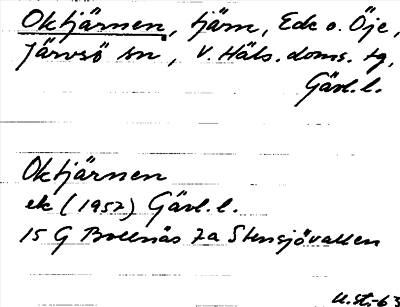 Oktjärnen, tjärn, Ede o. Öje,
Järvsö sn, V. Häls. doms. tg,
Gävl. l.
Oktjärnen
ek (1952) Gävl. l.
15 G Bollnäs 7a Stensjövallen
U.St.-63